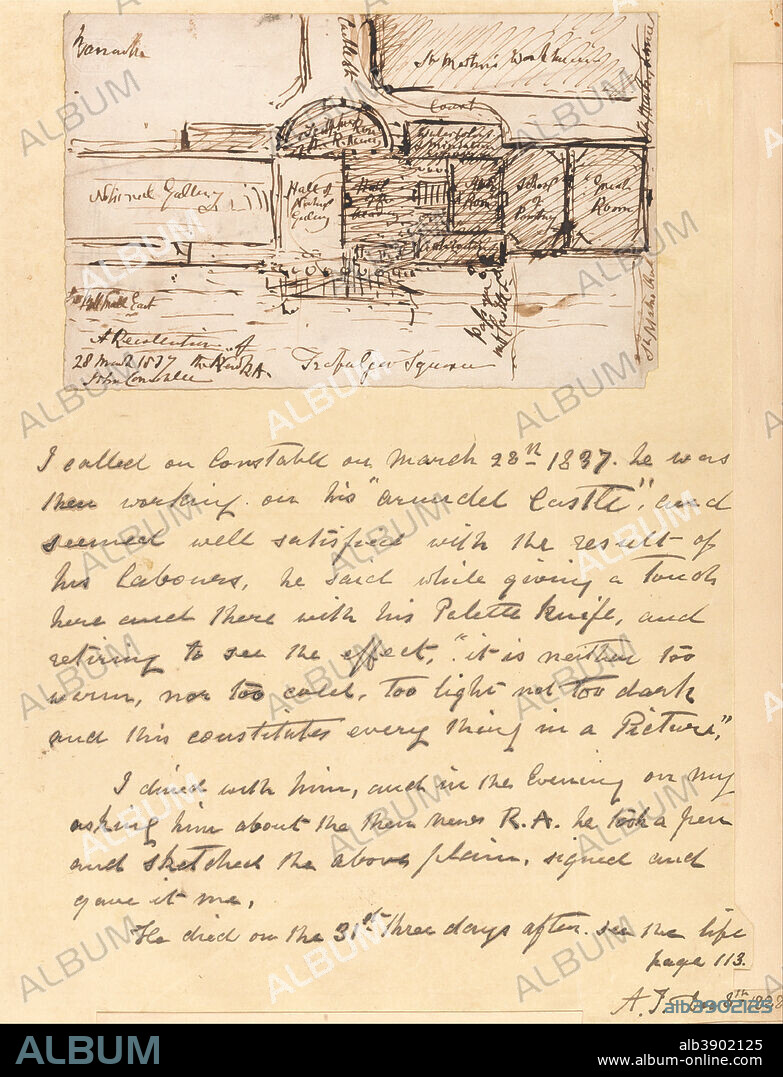 Barracks
Castle St
St Martin's Workhouse
Court
National Gallery
Hall of
National
Gallery
Hall
School
of
Painting
Great
Room
Pall Mall East
A Recollection of
28 March 1837 the New R.A.
John Constable
Trafalgar Square
I called on Constable on March 28th 1837. he was
then working on his "Arundel Castle", and
seemed well satisfied with the result of
his labours, he said while giving a touch
here and there with his Palette knife, and
retiring to see the effect, "it is neither too
warm, nor too cold, too light not too dark
and this constitutes every thing in a Picture,"
I dined with him, and in the Evening on my
asking him about the then new R.A. he took a pen
and sketched the above plan, signed and
gave it me,
He died on the 31st three days after. see the life
page 113.
ALBUM
alb3902125
www.album-online.com